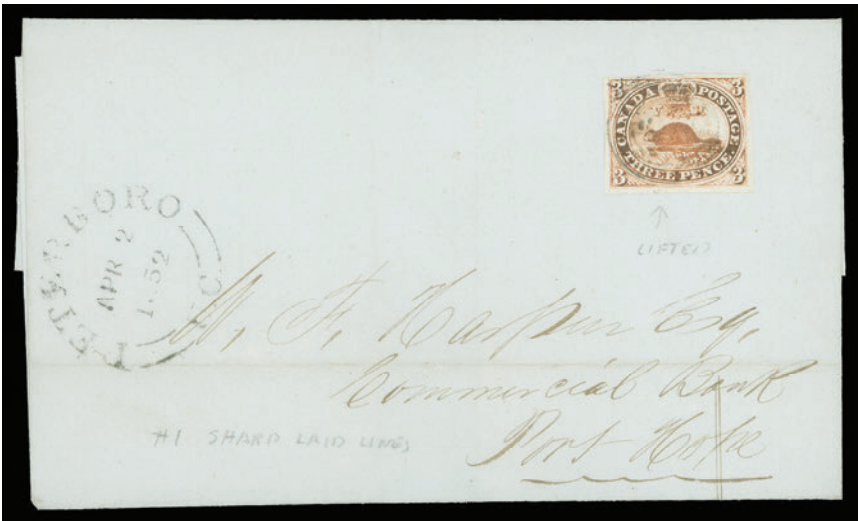 3 3
CANADA POSTAGE
THREE PENCE.
3 3
LIFTED
PETERBORO
APR 2
1852
C
W, F, Harper Esq,
Commercial Bank
Port Hope
#1 SHARP LAID LINES